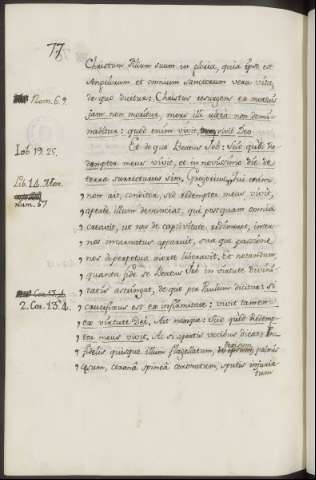 77
Christum filium suum in gloria, quia ipse est
Angelorum et omnium Sanctorum vera vita,
de quo dicitur: Christus resurgens ex mortuis
Rom. 6. 9.
jam non moritur, mors illi ultra non domi-
nabitur: quod enim vivit, vivit Deo.
Et de quo Beatus Job: Scio quod Re-
Iob 19. 25.
demptor meus vivit, et in novissimo die de
terra surrecturus sim, Gregorius, Qui enim
Lib. 14. Mor.
„ non ait, conditor, sed redemptor meus vivit,
Num. 67
„ aperte illum denunciat, qui postquam omnia
„ creavit, ut nos de captivitate redimeret, inter
„ nos incarnatus apparuit, sua que passione
„ nos a perpetua morte liberavit. Et notandum
„ quanta fide se Beatus Job in virtute Divini
„ tatis astringat, de quo per Paulum dicitur: si
2. Cor. 13. 4.
crucifixus est ex infirmitate; vivit tamen
ex virtute Dei. Ait namque: Scio quod Redemp-
tor meus vivit. Ac si apertis vocibus dicat: In
fidelis quisque illum flagellatum, derisum, palmis
„ cæsum, corona spinea coronatum, sputis injuria
tum